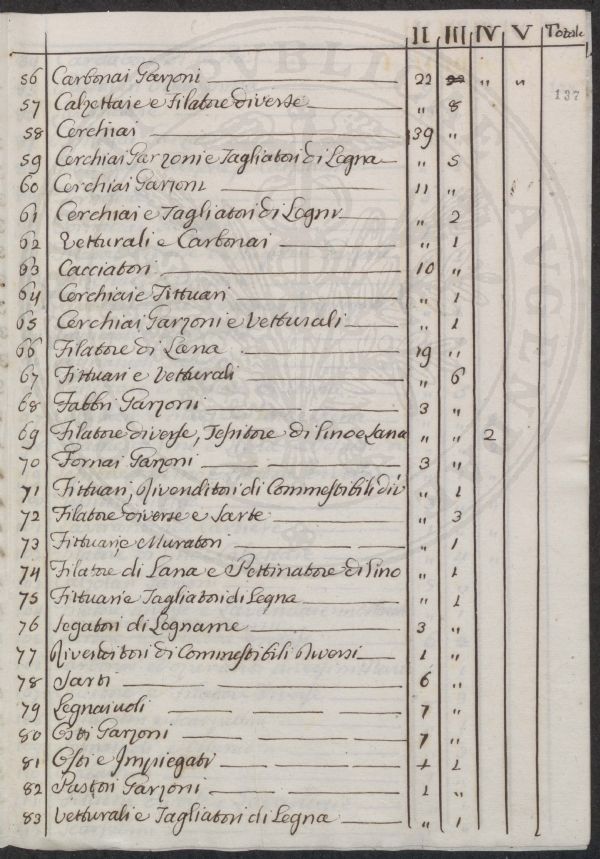 II III IV V Totale
137
56 Carbonai Garzoni 22 „ „
57 Calzettare e Filatore diverse „ 8
58 Cerchiai 39 „
59 Cerchiai Garzoni e Tagliatori di Legna „ 5
60 Cerchiai Garzoni 11 „
61 Cerchiai e Tagliatori di Legni „ 2
62 Vetturali e Carbonai „ 1
63 Cacciatori 10 „
64 Cerchiai e Fittuari „ 1
65 Cerchiai Garzoni e Vetturali „ 1
66 Filatore di Lana 19 „
67 Fittuari e Vetturali „ 6
68 Fabbri Garzoni 3 „
69 Filatore diverse, Tessitore di lino e Lana „ „ 2
70 Fornai Garzoni 3 „
71 Fittuari, Rivenditori di Commestibili div „ 1
72 Filatore diverse e Sarte „ 3
73 Fittuari e Muratori „ 1
74 Filatore di Lana e Pettinatore di lino „ 1
75 Fittuari e Tagliatori di Legna „ 1
76 Segatori di Legname 3 „
77 Rivenditori di Commestibili diversi 1 „
78 Sarti 6 „
79 Legnaiuoli 7 „
80 Osti Garzoni 7 „
81 Osti e Impiegati 1
82 Pastori Garzoni 1 „
83 Vetturali e Tagliatori di Legna „ 1